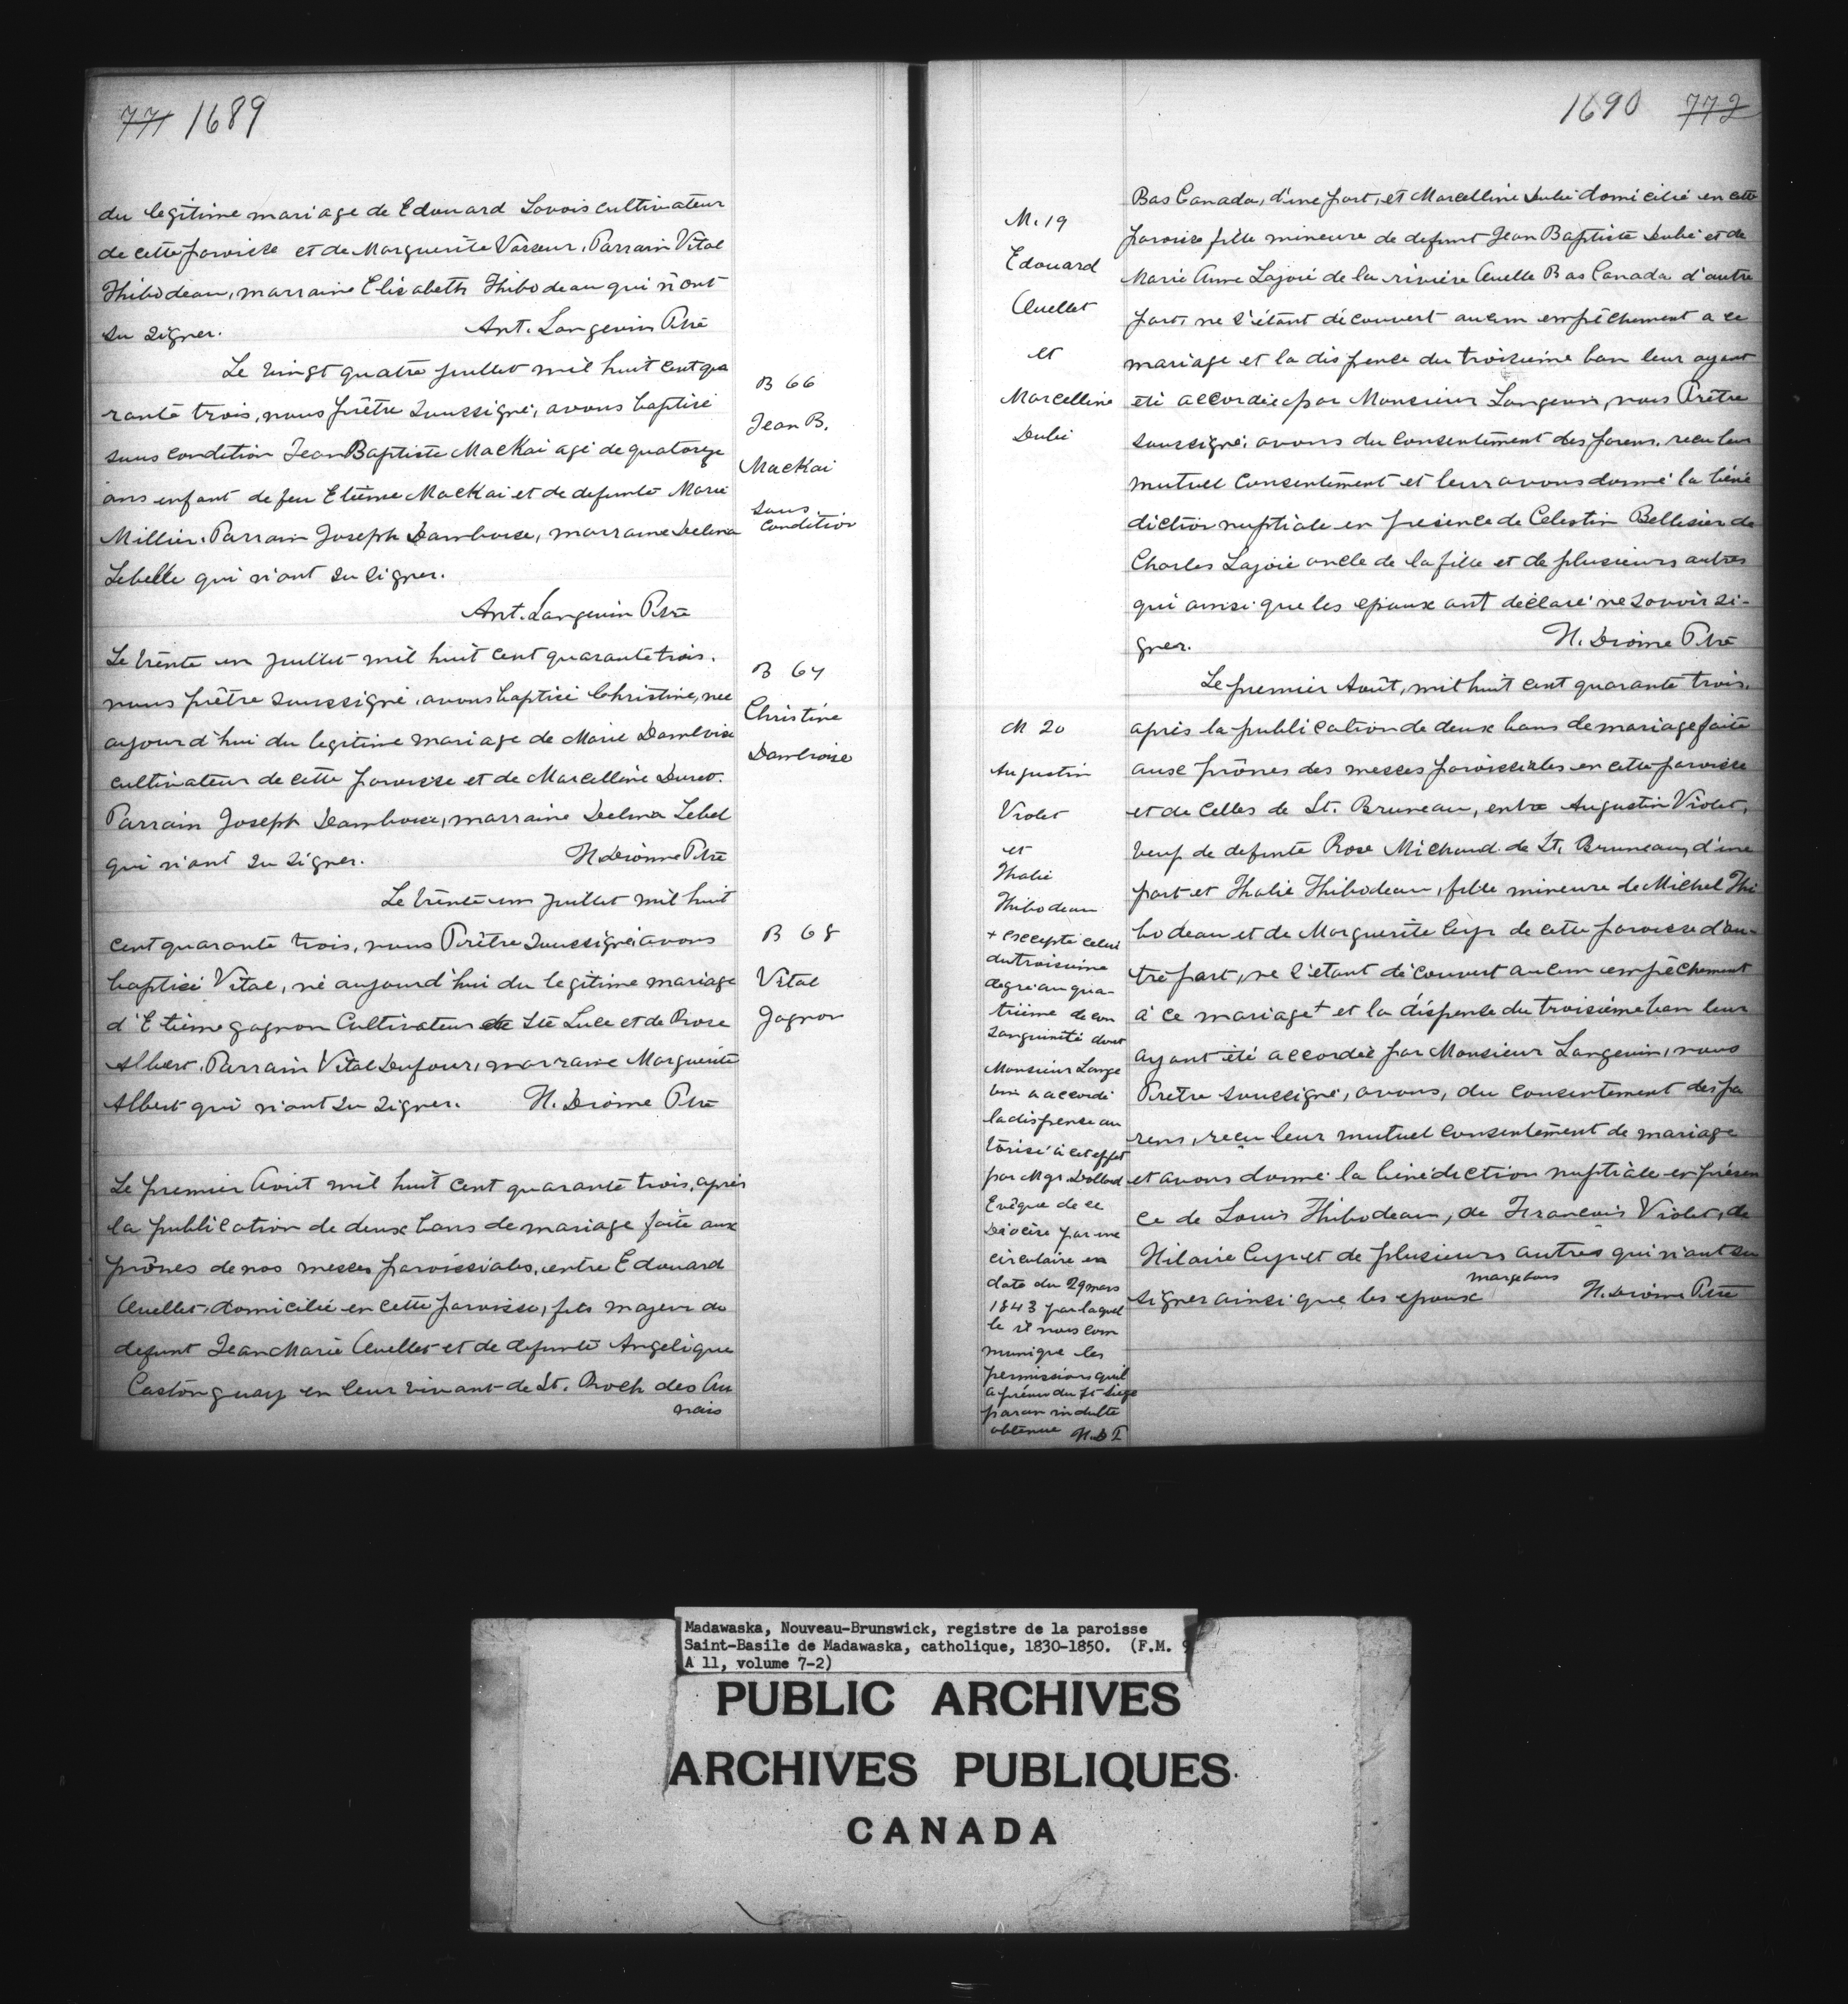 771 1689
du legitime mariage de Edouard Lovois cultivateur
de cette paroisse et de Marguerite Vasseur. Parrain Vital
Thibodeau, marraine Elisabeth Thibodeau qui n'ont
su signer. Ant. Langevin Ptre
Le vingt quatre juillet mil huit cent qua
rante trois, nous prêtre soussigné, avons baptisé
sans condition Jean Baptiste MacKai agé de quatorze
ans enfant de feu Etième MacKai et de defunte Marie
Millier. Parrain Joseph Damboise, marraine Delina
Lebelle qui n'ont su signer.
Ant. Langevin Ptre
B 66
Jean B.
MacKai
sans
condition
Le trente un juillet mil huit cent quarante trois.
nous prêtre soussigné, avons baptisé Christine, nee
aujourd'hui du legitime mariage de Marie Damboise
cultivateur de cette paroisse et de Marcelline Duret.
Parrain Joseph Damboise, marraine Delina Lebel
qui n'ont su signer. N. Dionne Ptre
B 67
Christine
Damboise
Le trente un juillet mil huit
cent quarante trois, nous Prêtre soussigné, avons
baptisé Vital, né aujourd'hui du legitime mariage
d'Etième gagnon Cultivateur de Ste Luce et de Rose
Albert. Parrain Vital Dufour, marraine Marguerite
Albert qui n'ont su signer. N. Dionne Ptre
B 68
Vital
Gagnon
Le premier Aout mil huit cent quarante trois, après
la publication de deux bans de mariage faite aux
prônes de nos messes paroissiales, entre Edouard
Ouellet, domicilié en cette paroisse, fils majeur de
defunt Jean Marie Ouellet et de defunte Angelique
Castonguay en leur vivant de St. Roch des Au
nais
1690 772
Bas Canada, d'une part, et Marcelline Dubé domicilié en cette
paroisse fille mineure de defunt Jean Baptiste Dubé et de
Marie Anne Lajoie de la rivière Ouelle Bas Canada d'autre
part, ne s'étant découvert aucun empêchement a ce
mariage et la dispence du troisieme ban leur ayant
été accordée par Monsieur Langevin, nous Prêtre
soussigné, avons du consentement des parens, recu leur
mutuel consentement et leur avons donné la béné
diction nuptiale en présence de Celestin Bellesier de
Charles Lajoie oncle de la fille et de plusieurs autres
qui ainsi que les epoux ont déclaré ne savoir si-
gner. N. Dionne Ptre
M. 19
Edouard
Ouellet
et
Marcelline
Dubé
Le premier Août, mil huit cent quarante trois,
après la publication de deux bans de mariage faite
aux prônes des messes paroissiales en cette paroisse
et de celles de St. Bruneau, entre Augustin Violet,
veuf de defunte Rose Michaud de St. Bruneau, d'une
part et Thalie Thibodeau, fille mineure de Michel Thi
bodeau et de Marguerite Cyr de cette paroisse d'au-
tre part, ne s'etant découvert aucun empêchement
à ce mariage + et la dispense du troisième ban leur
ayant été accordée par Monsieur Langevin, nous
Prêtre soussigné, avons, du consentement des pa
rens, reçu leur mutuel consentement de mariage
et avons donné la bénédiction nuptiale en présen
ce de Louis Thibodeau, de Francois Violet, de
Hilaire Cyr et de plusieurs autres qui n'ont su
signer ainsi que les epoux N. Dionne Ptre
M 20
Augustin
Violet
et
Thalie
Thibodeau
+ excepté celui
du troisieme
degré au qua-
trième de con
sanguinité dont
Monsieur Lange
vin a accordé
la dispense au
torisé à cet effet
par Mgr. Dollard
Evêque de ce
Diocèse par une
circulaire en
date du 29 mars
1843 par laquel
le il nous com
munique les
permissions qu'il
a du St Siege
par un indulte
obtenue N.D.P
Madawaska, Nouveau-Brunswick, registre de la paroisse
Saint-Basile de Madawaska, catholique, 1830-1850. (F.M. 9
A 11, volume 7-2)
PUBLIC ARCHIVES
ARCHIVES PUBLIQUES
CANADA